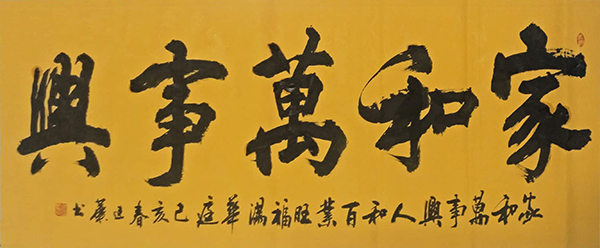 家和萬事興
家和萬事興人和百業旺福满華庭己亥春书